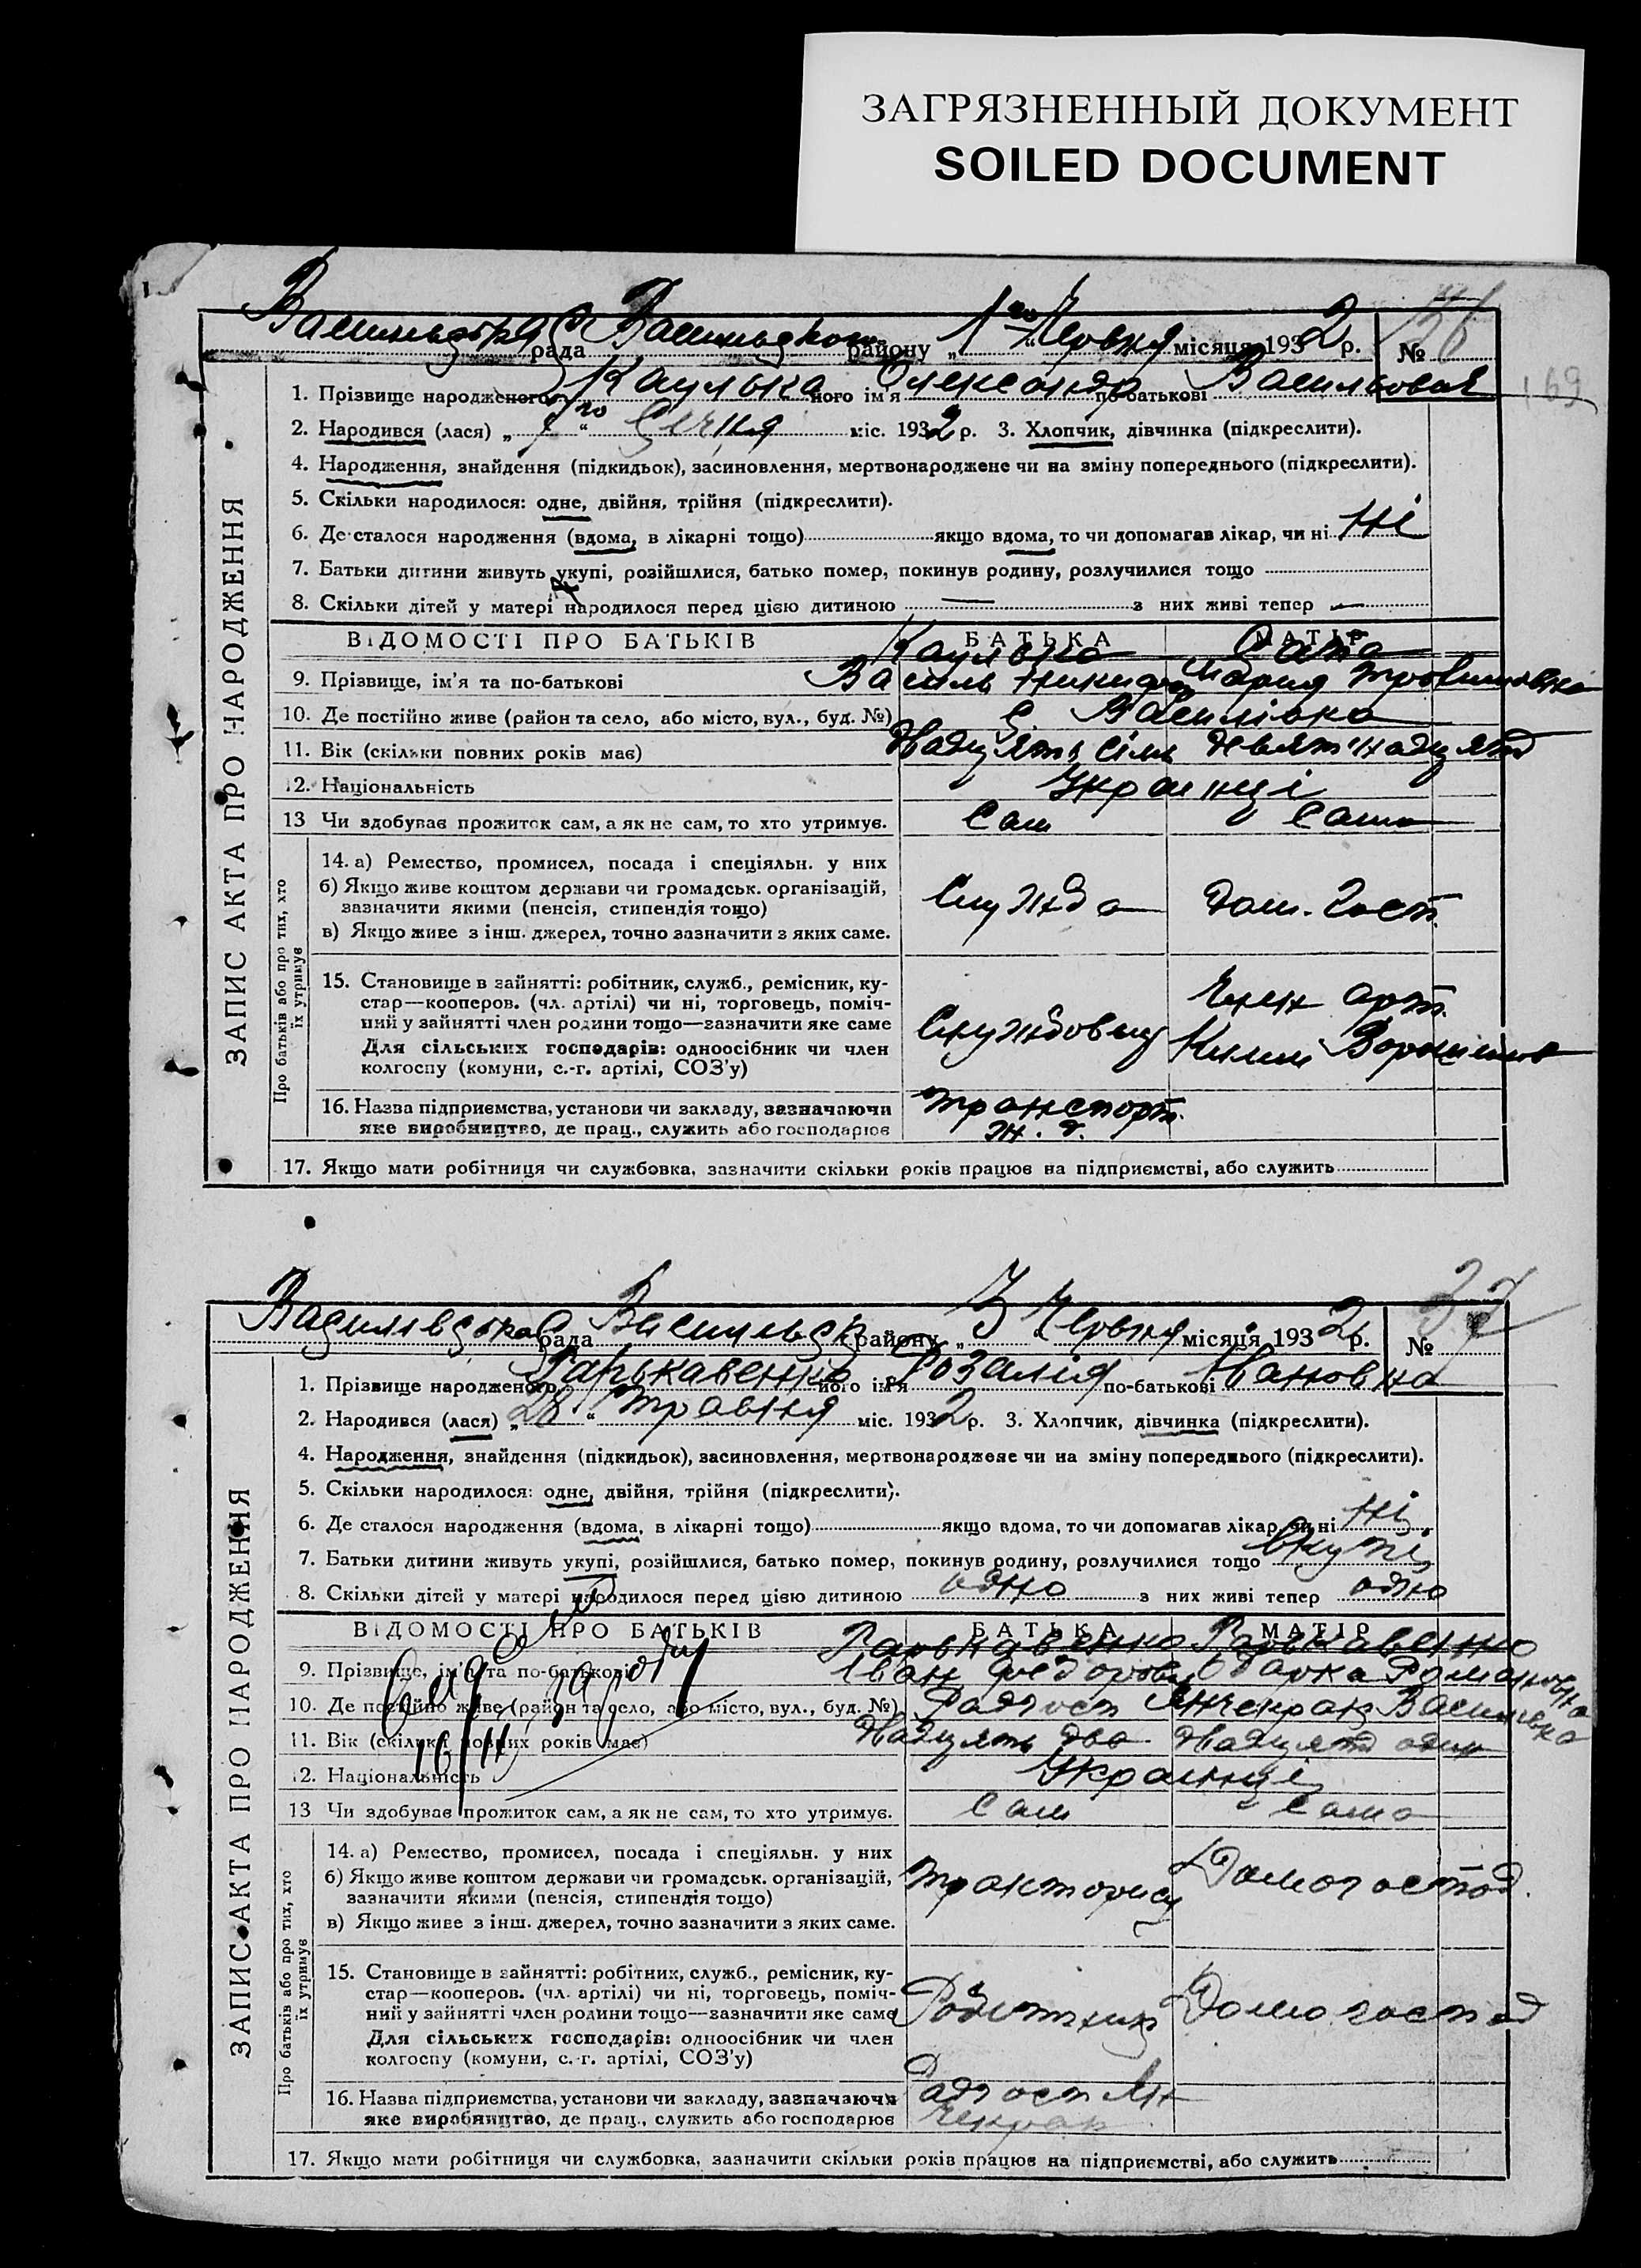 ЗАГРЯЗНЕННЫЙ ДОКУМЕНТ
SOILED DOCUMENT
рада району „1го“ Червня місяця 1932 р. № 36
169
ЗАПИС АКТА ПРО НАРОДЖЕННЯ
1. Прізвище народженого Каулька його ім'я Олександр по батькові
2. Народився (лася) „ “ Січня міс. 1932 р. 3. Хлопчик, дівчинка (підкреслити).
4. Народження, знайдення (підкидьок), засиновлення, мертвонароджене чи на зміну попереднього (підкреслити).
5. Скільки народилося: одне, двійня, трійня (підкреслити).
6. Де сталося народження (вдома, в лікарні тощо) якщо вдома, то чи допомагав лікар, чи ні Ні
7. Батьки дитини живуть укупі, розійшлися, батько помер, покинув родину, розлучилися тощо
8. Скільки дітей у матері народилося перед цією дитиною — з них живі тепер —
ВІДОМОСТІ ПРО БАТЬКІВ БАТЬКА МАТІР
Каулька
9. Прізвище, ім'я та по-батькові Василь Мария
10. Де постійно живе (район та село, або місто, вул., буд. №) с. Василівка
11. Вік (скільки повних років має) Надцять сім девятнадцят
12. Національність Украинці
13 Чи здобував прожиток сам, а як не сам, то хто утримує. Сам Сама
Про батьків або про тих, хто їх утримує
14. а) Ремество, промисел, посада і спеціяльн. у них
б) Якщо живе коштом держави чи громадськ. організацій,
зазначити якими (пенсія, стипендія тощо) Служба Дом. Госп.
в) Якщо живе з інш. джерел, точно зазначити з яких саме.
15. Становище в зайнятті: робітник, служб., ремісник, ку-
стар—кооперов. (чл. артілі) чи ні, торговець, поміч- Член арт.
ний у зайнятті член родини тощо—зазначити яке саме
Для сільських господарів: одноосібник чи член
колгоспу (комуни, с.-г. артілі, СОЗ'у)
16. Назва підприємства, установи чи закладу, зазначаючи Транспорт.
яке виробництво, де прац., служить або господарює ж. д.
17. Якщо мати робітниця чи службовка, зазначити скільки років працює на підприємстві, або служить
Василівська рада району „3 “ Червня місяця 1932 р. № 37
ЗАПИС АКТА ПРО НАРОДЖЕННЯ
1. Прізвище народженого Гарькавенко його ім'я Розалія по-батькові Івановна
2. Народився (лася) „28“ Травня міс. 1932 р. 3. Хлопчик, дівчинка (підкреслити).
4. Народження, знайдення (підкидьок), засиновлення, мертвонароджене чи на зміну попереднього (підкреслити).
5. Скільки народилося: одне, двійня, трійня (підкреслити).
6. Де сталося народження (вдома, в лікарні тощо) якщо вдома, то чи допомагав лікар, чи ні Ні
7. Батьки дитини живуть укупі, розійшлися, батько помер, покинув родину, розлучилися тощо вкупі
8. Скільки дітей у матері народилося перед цією дитиною одно з них живі тепер одно
ВІДОМОСТІ ПРО БАТЬКІВ БАТЬКА МАТІР
Гарькавенко Гарькавенко
9. Прізвище, ім'я та по-батькові Іван Федорович Одарка Романовна
10. Де постійно живе (район та село, або місто, вул., буд. №) Радгосп Янчекрак Василівка
11. Вік (скільки повних років має) Надцять два Надцять один
12. Національність Украинці
13 Чи здобував прожиток сам, а як не сам, то хто утримує. Сам Сама
Про батьків або про тих, хто їх утримує
14. а) Ремество, промисел, посада і спеціяльн. у них
б) Якщо живе коштом держави чи громадськ. організацій, Домогоспод.
зазначити якими (пенсія, стипендія тощо)
в) Якщо живе з інш. джерел, точно зазначити з яких саме.
15. Становище в зайнятті: робітник, служб., ремісник, ку-
стар—кооперов. (чл. артілі) чи ні, торговець, поміч-
ний у зайнятті член родини тощо—зазначити яке саме Робітник Домогоспод
Для сільських господарів: одноосібник чи член
колгоспу (комуни, с.-г. артілі, СОЗ'у)
16. Назва підприємства, установи чи закладу, зазначаючи Радгосп Ян
яке виробництво, де прац., служить або господарює чекрак
17. Якщо мати робітниця чи службовка, зазначити скільки років працює на підприємстві, або служить